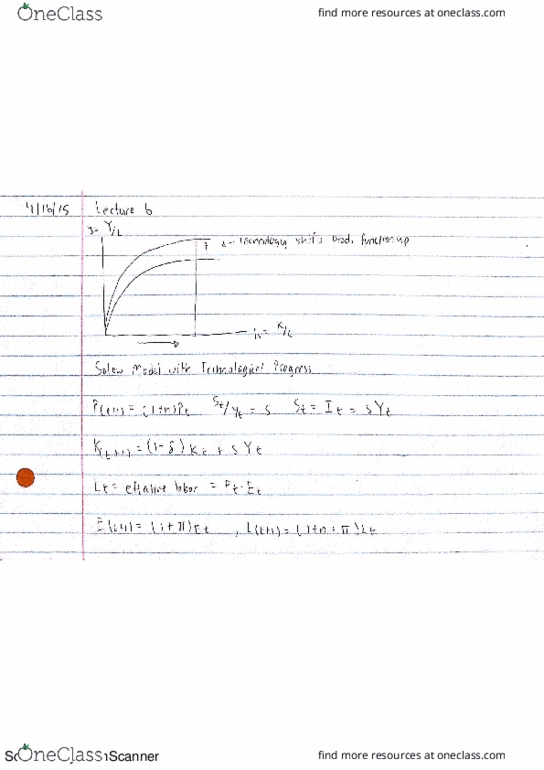 OneClass find more resources at oneclass.com
4/16/15 Lecture 6
y = Y/L
← technology shifts prod. function up
k = K/L
Solow Model with Technological Progress
P(t+1) = (1+n)Pt St/Yt = s St = It = sYt
K(t+1) = (1-δ)Kt + sYt
Lt = effective labor = Pt·Et
E(t+1) = (1+π)Et , L(t+1) = (1+n+π)Lt
OneClass Scanner find more resources at oneclass.com